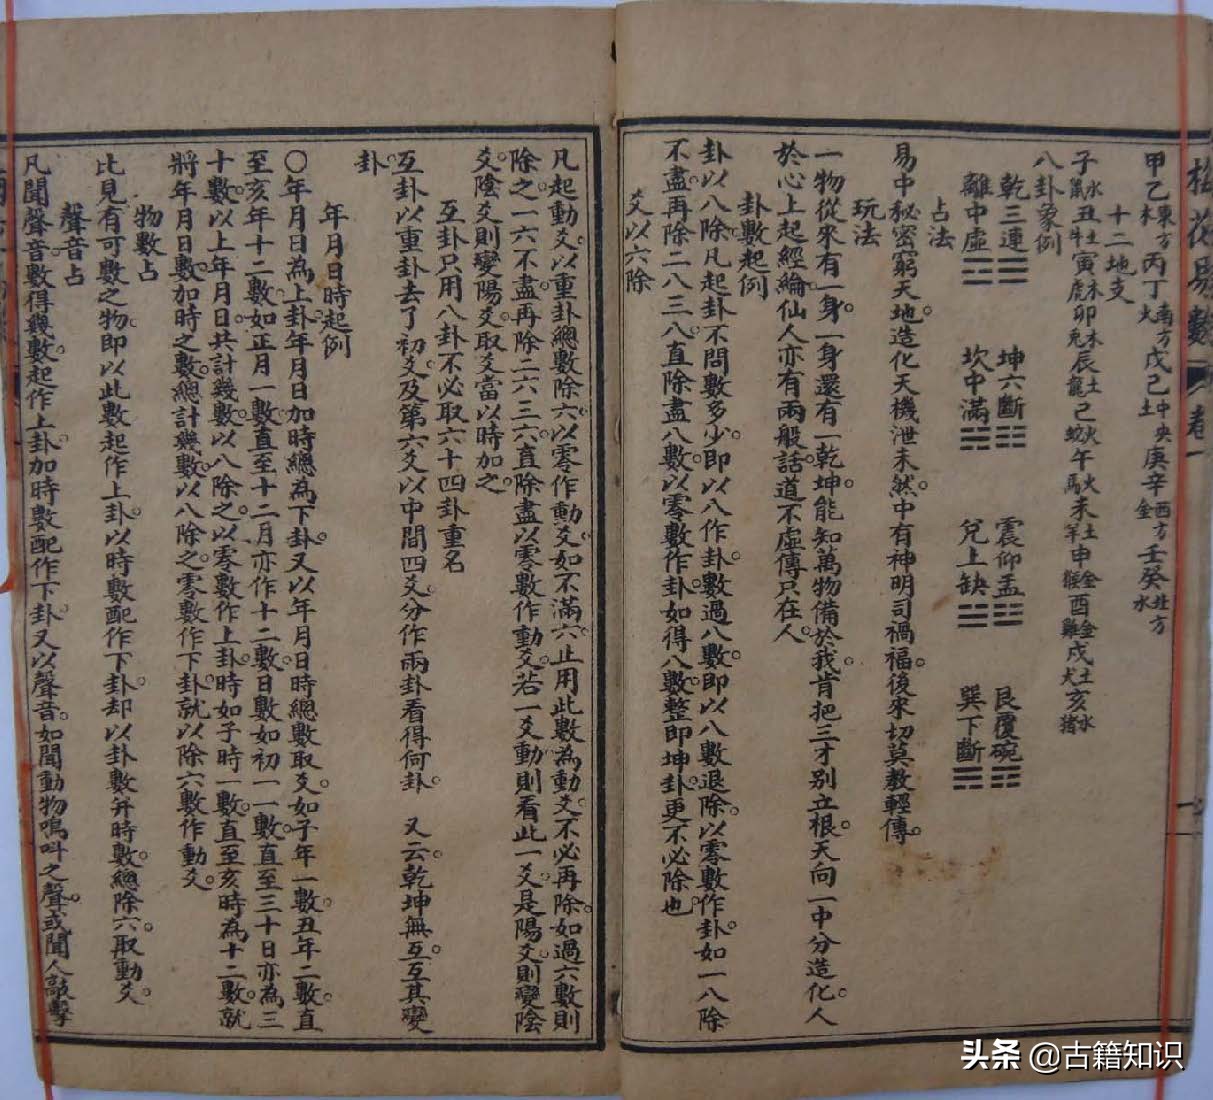 梅花易數 卷一
甲乙東方木丙丁南方火戊己中央土庚辛西方金壬癸北方水
十二地支
子水鼠丑土牛寅木虎卯木兔辰土龍巳火蛇午火馬未土羊申金猴酉金雞戌土犬亥水猪
八卦象例
乾三連☰ 坤六斷☷ 震仰盂☳ 艮覆碗☶
離中虛☲ 坎中滿☵ 兌上缺☱ 巽下斷☴
占法
易中秘密窮天地。造化天機泄未然。中有神明司禍福。後來切莫教輕傳。
玩法
一物從來有一身。一身還有一乾坤。能知萬物備於我。肯把三才別立根。天向一中分造化。人
於心上起經綸。仙人亦有兩般話。道不虛傳只在人。
卦數起例
卦以八除。凡起卦不問數多少。即以八作卦。數過八數。即以八數退除。以零數作卦。如一八除
不盡。再除二八三八。直除盡八數。以零數作卦。如得八數整。即坤卦。更不必除也。
爻以六除
凡起動爻。以重卦總數除六。以零作動爻。如不滿六。止用此數為動爻。不必再除。如過六數則
除之。一六不盡。再除二六三六。直除盡以零數作動爻。若一爻動則看此一爻。是陽爻。則變陰
爻。陰爻則變陽爻。取爻當以時加之。
互卦只用八卦不必取六十四卦重名
互卦以重卦去了初爻及第六爻以中間四爻。分作兩卦看得何卦。 又云乾坤無互。互其變
卦。
年月日時起例
〇年月日為上卦。年月日加時總為下卦。又以年月日時總數取爻。如子年一數。丑年二數。直
至亥年十二數。如正月一數直至十二月亦作十二數。日數如初一一數。直至三十日亦為三
十數。以上年月日共計幾數。以八除之。以零數作上卦。時如子時一數。直至亥時為十二數。就
將年月日數。加時之數。總計幾數。以八除之。零數作下卦。就以除六數作動爻。
物數占
比見有可數之物。即以此數起作上卦。以時數配作下卦。却以卦數并時數。總除六。取動爻。
聲音占
凡聞聲音。數得幾數。起作上卦。加時數配作下卦。又以聲音。如聞動物鳴叫之聲。或聞人敲擊
头条 @古籍知识